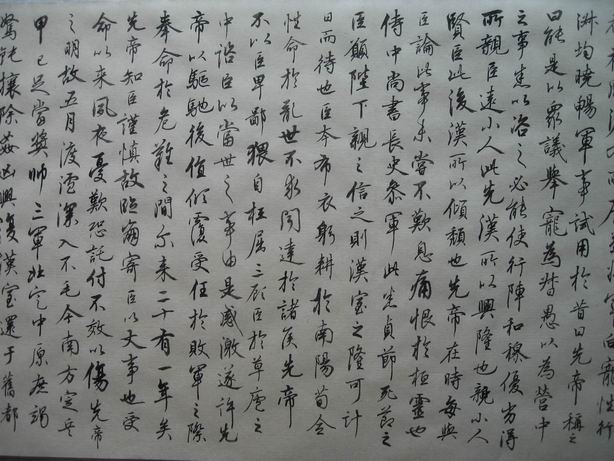 向寵性行
淑均曉暢軍事試用於昔日先帝稱之
曰能是以眾議舉寵為督愚以為營中
之事悉以咨之必能使行陣和穆優劣得
所親臣遠小人此先漢所以興隆也親小人
賢臣此後漢所以傾頹也先帝在時每與
臣論此事未嘗不歎息痛恨於桓靈也
侍中尚書長史參軍此悉貞節死節之
臣願陛下親之信之則漢室之隆可計
日而待也臣本布衣躬耕於南陽苟全
性命於亂世不求聞達於諸侯先帝
不以臣卑鄙猥自枉屈三顧臣於草廬之
中諮臣以當世之事由是感激遂許先
帝以驅馳後值傾覆受任於敗軍之際
奉命於危難之間尔來二十有一年矣
先帝知臣謹慎故臨崩寄臣以大事也受
命以來夙夜憂歎恐託付不效以傷先帝
之明故五月渡瀘深入不毛今南方定兵
甲已足當獎帥三軍北定中原庶竭
駑鈍攘除姦凶興復漢室還于舊都